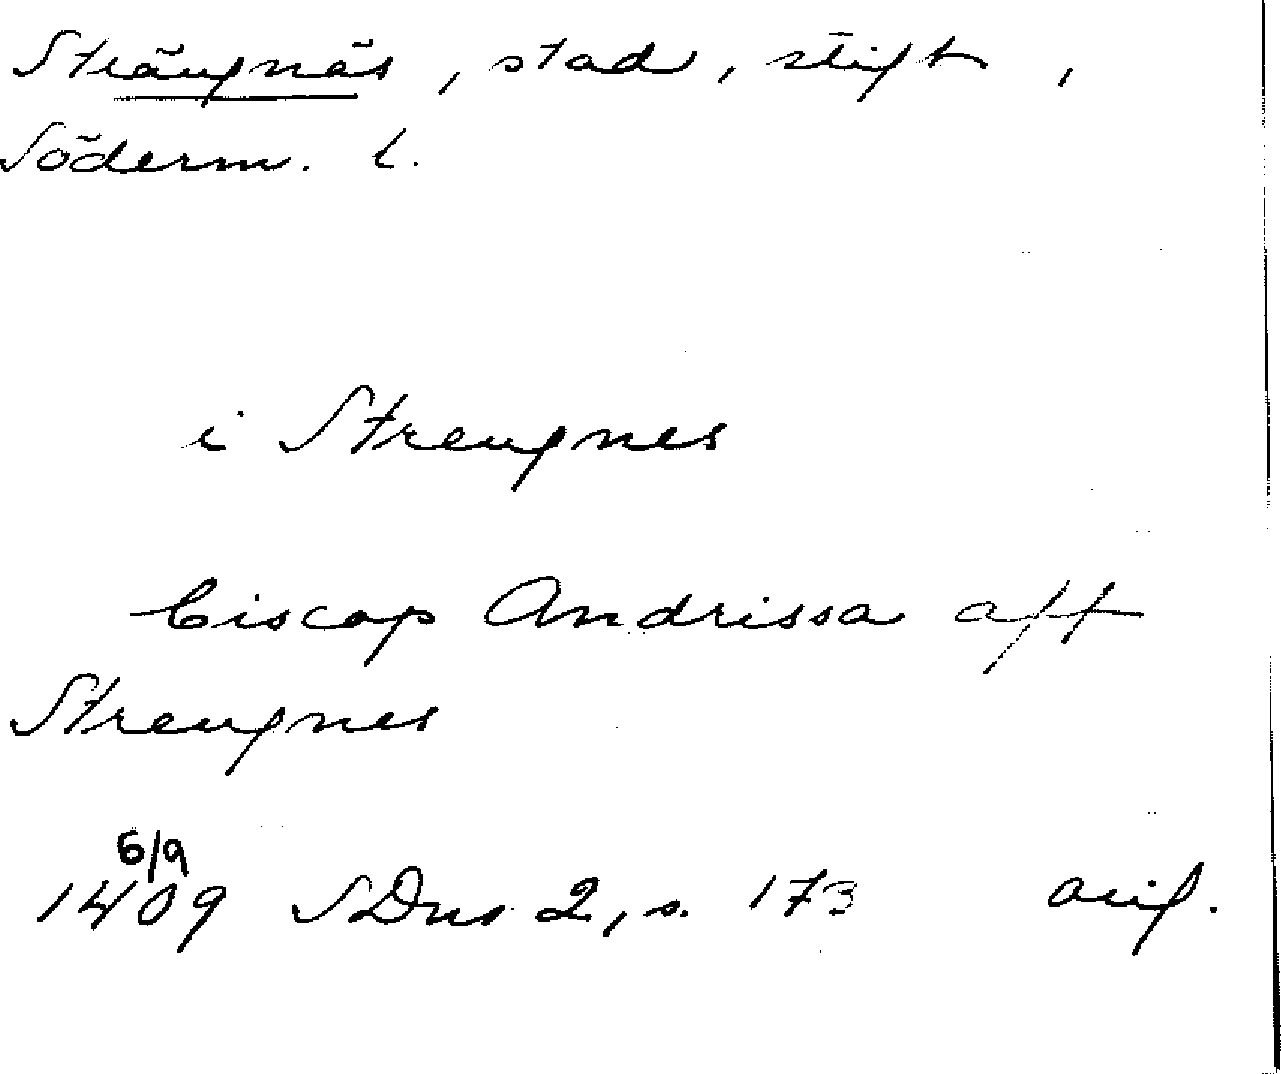 Strängnäs, stad, stift,
Söderm. l.
i Strengnes
biscop Andrissa aff
Strengnes
6/9
1409 SDns 2, s. 173 orig.